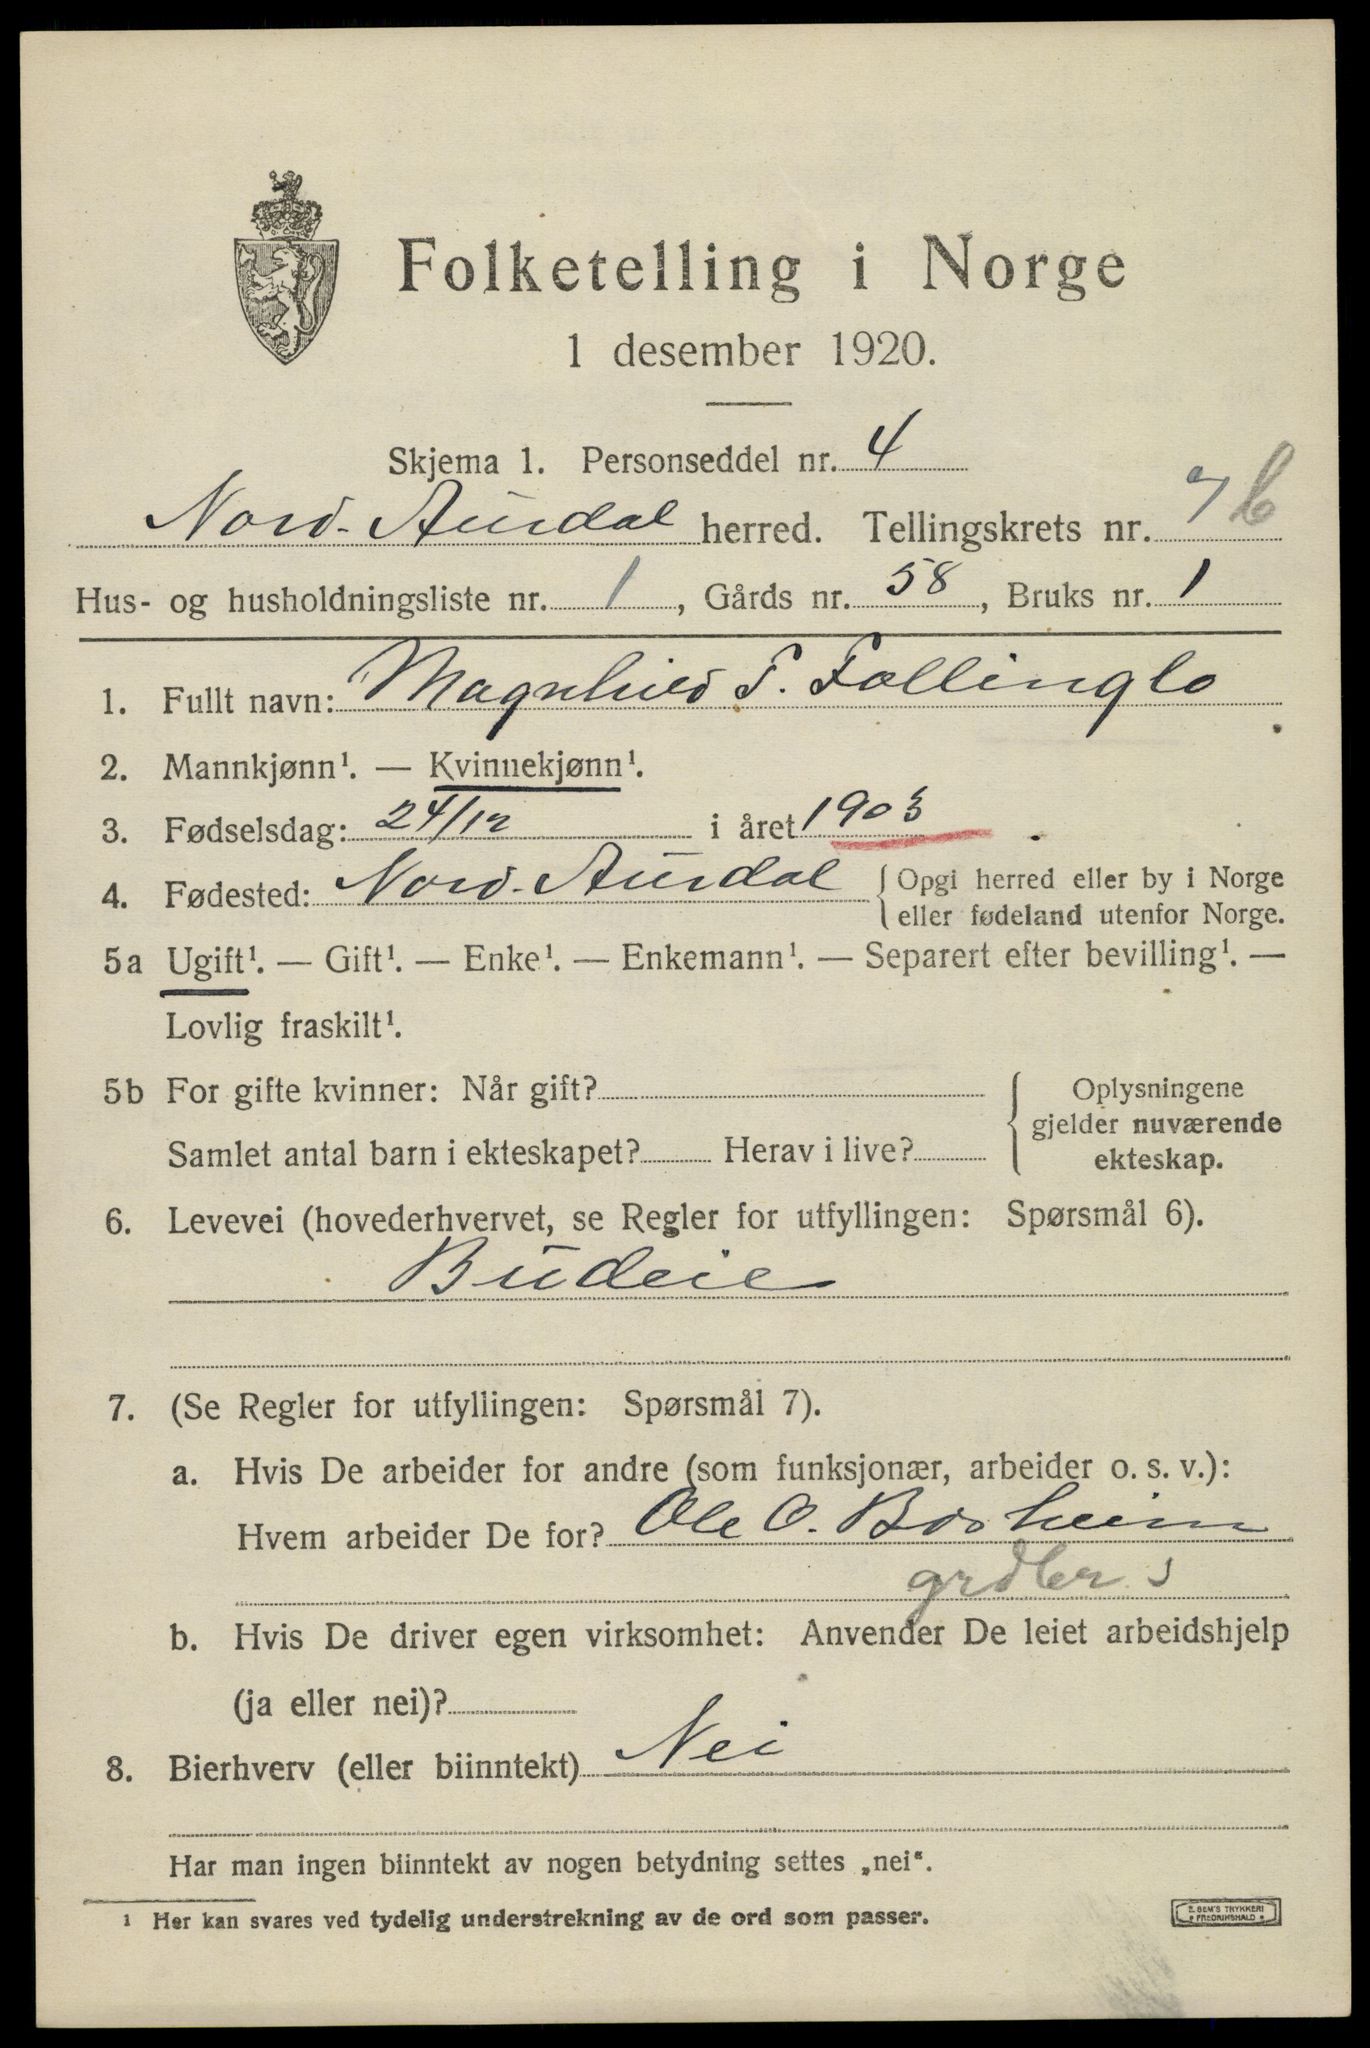 Folketelling i Norge
1 desember 1920.
Skjema 1. Personseddel nr. 4
Nord-Aurdal herred. Tellingskrets nr. 7 b
Hus- og husholdningsliste nr. 1, Gårds nr. 58, Bruks nr. 1
1. Fullt navn: Magnhild T. Follinglo
2. Mannkjønn¹. — Kvinnekjønn¹.
3. Fødselsdag: 24/12 i året 1903
4. Fødested: Nord-Aurdal { Opgi herred eller by i Norge
eller fødeland utenfor Norge.
5a Ugift¹. — Gift¹. — Enke¹. — Enkemann¹. — Separert efter bevilling¹. —
Lovlig fraskilt¹.
5b For gifte kvinner: Når gift? { Oplysningene
gjelder nuværende
Samlet antal barn i ekteskapet? Herav i live? ekteskap.
6. Levevei (hovederhvervet, se Regler for utfyllingen: Spørsmål 6).
Budeie
7. (Se Regler for utfyllingen: Spørsmål 7).
a. Hvis De arbeider for andre (som funksjonær, arbeider o. s. v.):
Hvem arbeider De for? Ole O. Boxheim
grdbr s
b. Hvis De driver egen virksomhet: Anvender De leiet arbeidshjelp
(ja eller nei)?
8. Bierhverv (eller biinntekt) Nei
Har man ingen biinntekt av nogen betydning settes „nei“.
¹ Her kan svares ved tydelig understrekning av de ord som passer.
E. SEM'S TRYKKERI
• FREDRIKSHALD •